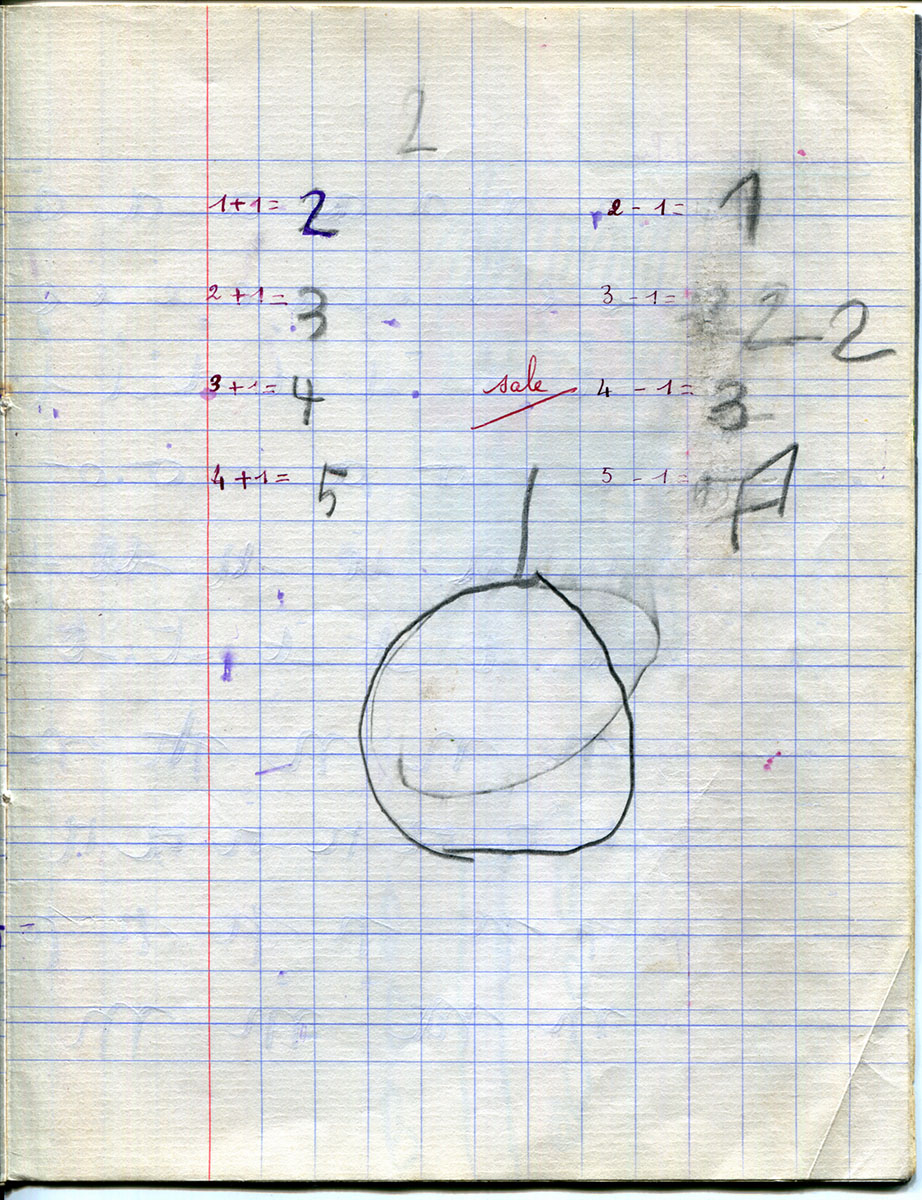 2
1+1= 2
2 - 1= 1
2+1= 3
3 - 1= 2 2
3+1= 4
sale
4 - 1= 3
4+1= 5
5 - 1=